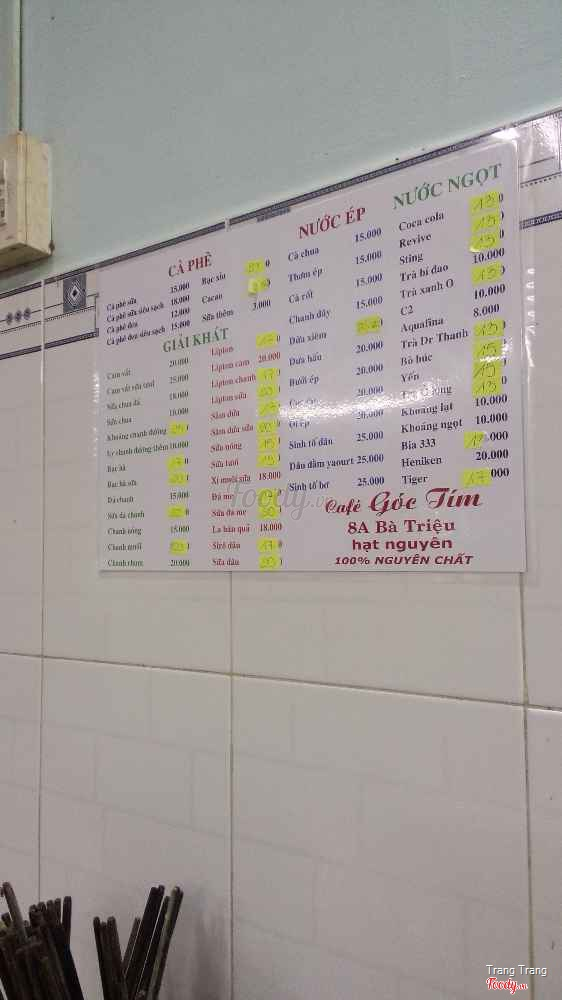 CÀ PHÊ
Cà phê sữa 15.000
Cà phê sữa siêu sạch 18.000
Cà phê đen 12.000
Cà phê đen siêu sạch 15.000
Bạc xỉu
Cacao
Sữa thêm 3.000
GIẢI KHÁT
Cam vắt 20.000
Cam vắt sữa tươi 25.000
Sữa chua đá 18.000
Sữa chua 10.000
Khoáng chanh đường
Ly chanh đường thêm 10.000
Bạc hà 17 0
Bạc hà sữa
Đá chanh 15.000
Sữa đá chanh
Chanh nóng 15.000
Chanh muối
Chanh rhum 20.000
Lipton 17 0
Lipton cam 20.000
Lipton chanh 17
Lipton sữa
Sâm dứa 17
Sâm dứa sữa
Sữa nóng 15
Sữa tươi 15
Xí muội sữa 18.000
Đá me
Sữa đá me
La hán quả 18.000
Sirô dâu 17 0
Sữa dâu
NƯỚC ÉP
Cà chua 15.000
Thơm ép 15.000
Cà rốt 15.000
Chanh dây 15.000
Dừa xiêm
Dưa hấu 20.000
Bưởi ép 20.000
20.000
Ổi ép 20.000
Sinh tố dâu 25.000
Dâu dầm yaourt 25.000
Sinh tố bơ 25.000
NƯỚC NGỌT
Coca cola 13 0
Revive 13 0
Sting 13 0
Trà bí đao 10.000
Trà xanh O 13 0
C2 10.000
Aquafina 8.000
Trà Dr Thanh 13 0
Bò húc 15
Yến 15
13 0
Khoáng lạt 10.000
Khoáng ngọt 10.000
Bia 333 .000
Heniken 20.000
Tiger 17 000
Café Góc Tím
8A Bà Triệu
hạt nguyên
100% NGUYÊN CHẤT
Foody.vn
Trang Trang
Foody.vn